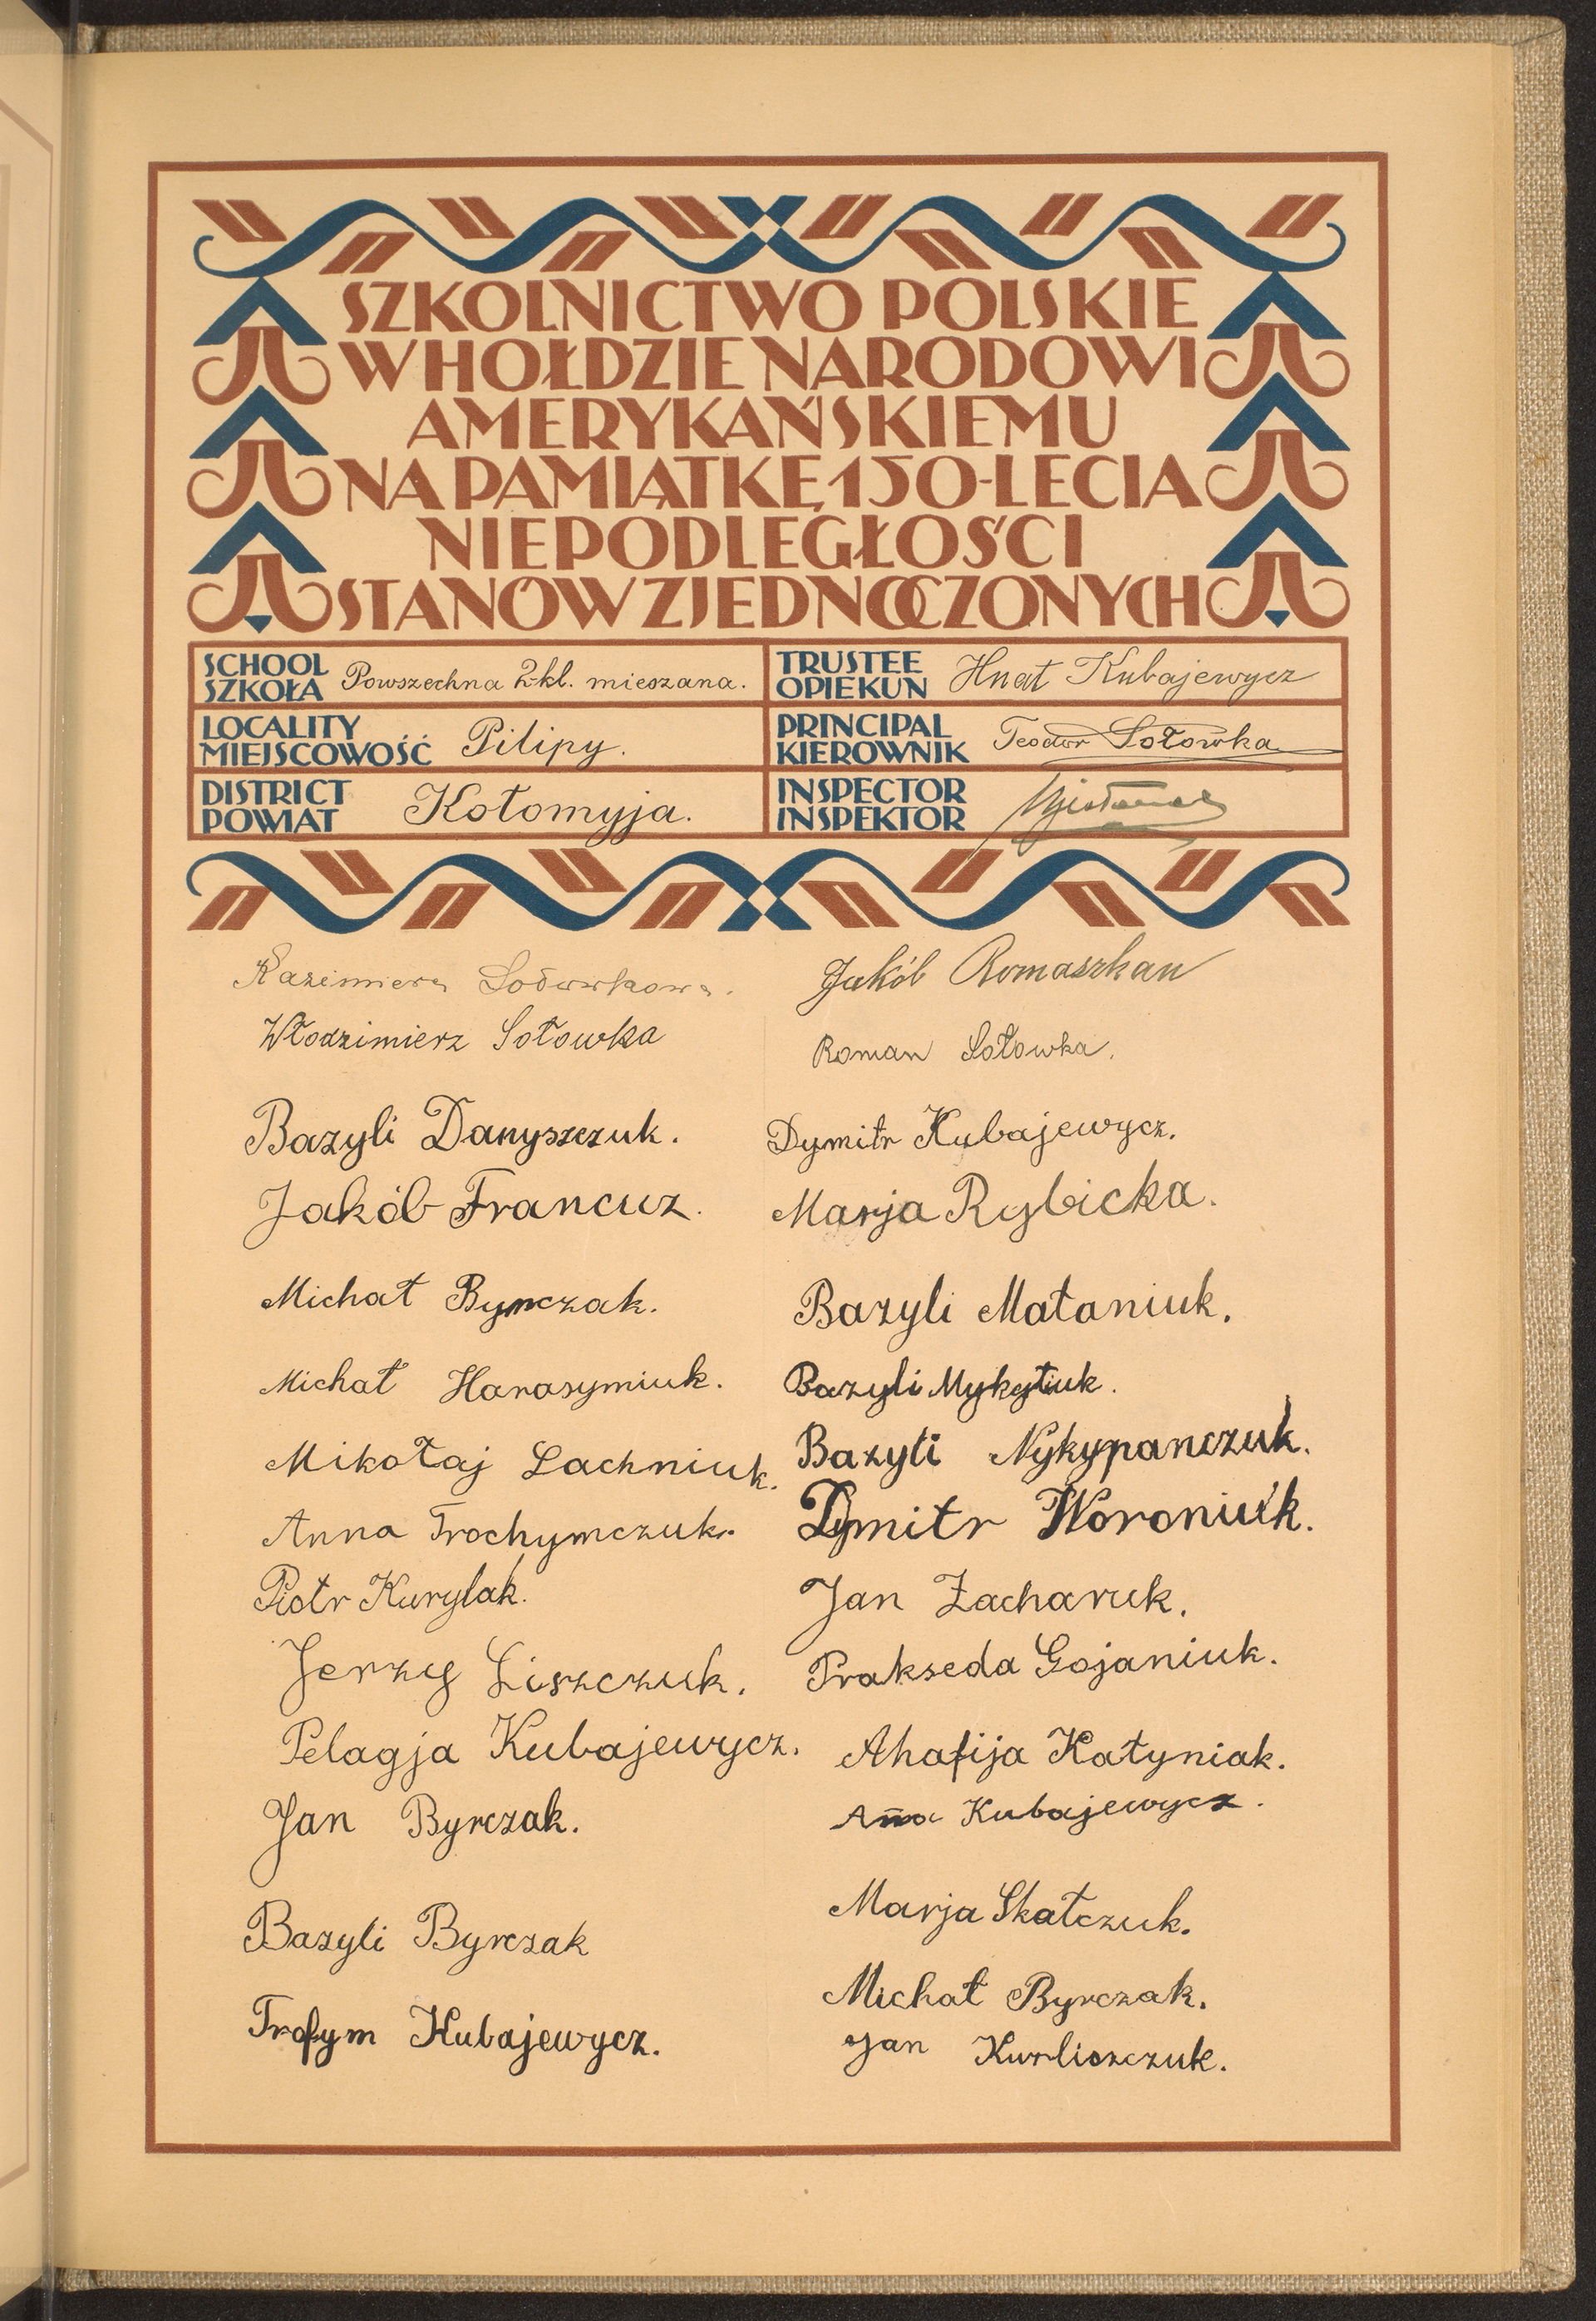 SZKOLNICTWO POLSKIE
W HOŁDZIE NARODOWI
AMERYKAŃSKIEMU
NA PAMIĄTKĘ 150-LECIA
NIEPODLEGŁOŚCI
STANÓW ZJEDNOCZONYCH
SCHOOL
SZKOŁA
Powszechna 2-kl. mieszana.
TRUSTEE
OPIEKUN
Hnat Kubajewycz
LOCALITY
MIEJSCOWOŚĆ
Pilipy.
PRINCIPAL
KIEROWNIK
Teodor Sołowka
DISTRICT
POWIAT
Kołomyja.
INSPECTOR
INSPEKTOR
Kazimiera
Włodzimierz Sołowka
Bazyli Danyszczuk.
Jakób Francuz.
Michał Byrczak.
Michał Harasymiuk.
Mikołaj Lachniuk.
Anna Trochymczuk.
Piotr Kurylak.
Jerzy Liszczuk.
Pelagja Kubajewycz.
Jan Byrczak.
Bazyli Byrczak
Trofym Kubajewycz.
Jakób Romaszkan
Roman Sołowka.
Dymitr Kubajewycz.
Marja Rybicka.
Bazyli Małaniuk.
Bazyli Mykytiuk.
Bazyli Nykypanczuk.
Dymitr Woroniuk.
Jan Zacharuk.
Prakseda Gojaniuk.
Ahafija Katyniak.
Anna Kubajewycz.
Marja Skałczuk.
Michał Byrczak.
Jan Kurliszczuk.